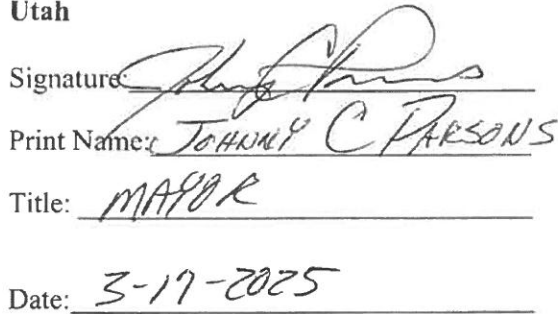 Utah
Signature:
Print Name: JOHNNY C PARSONS
Title: MAYOR
Date: 3-17-2025